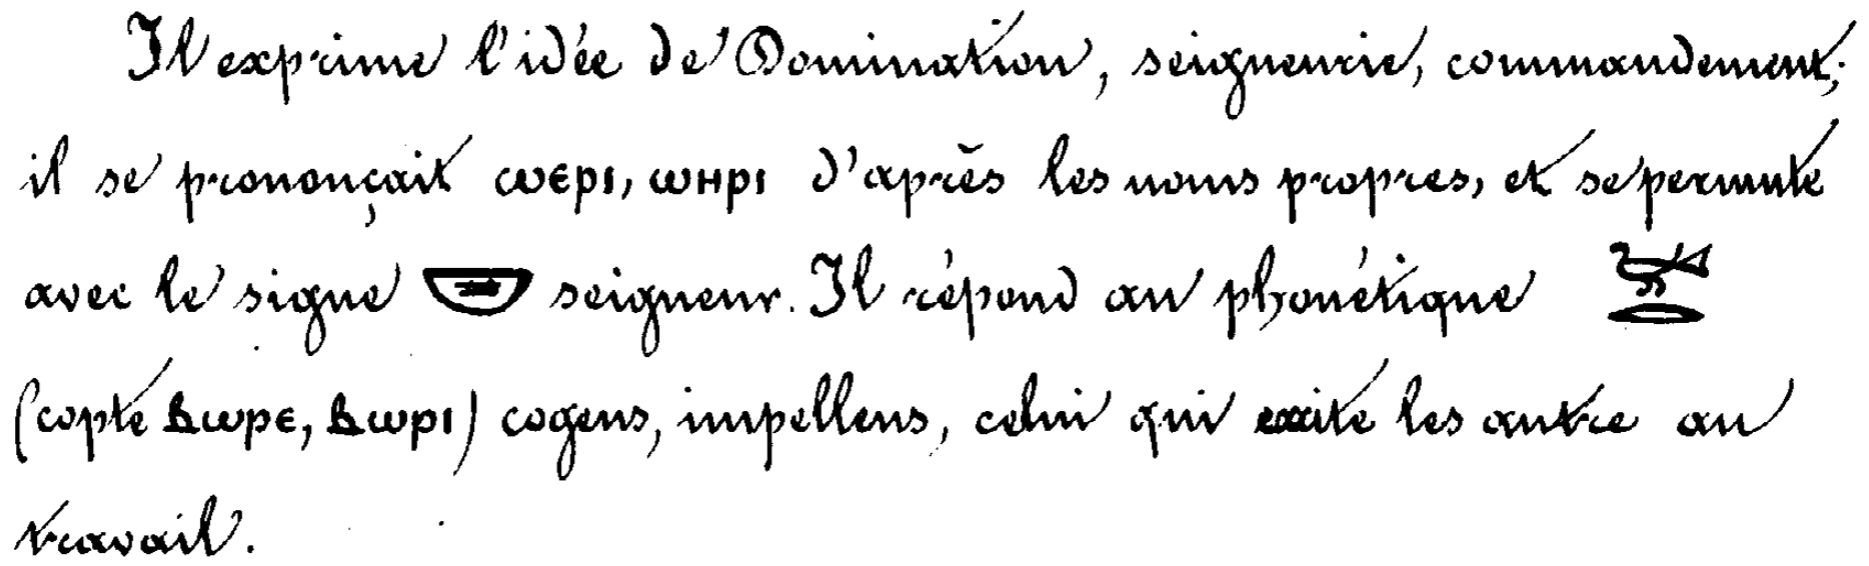 Il exprime l'idée de Domination, seigneurie, commandement;
il se prononçait ⲱⲉⲣⲓ, ⲱⲏⲣⲓ d'après les noms propres, et se permute
avec le signe 𓎟 seigneur. Il répond au phonétique 𓅨𓂋
(copte ⲃⲱⲣⲉ, ⲃⲱⲣⲓ) cogens, impellens, celui qui excite les autre au
travail.